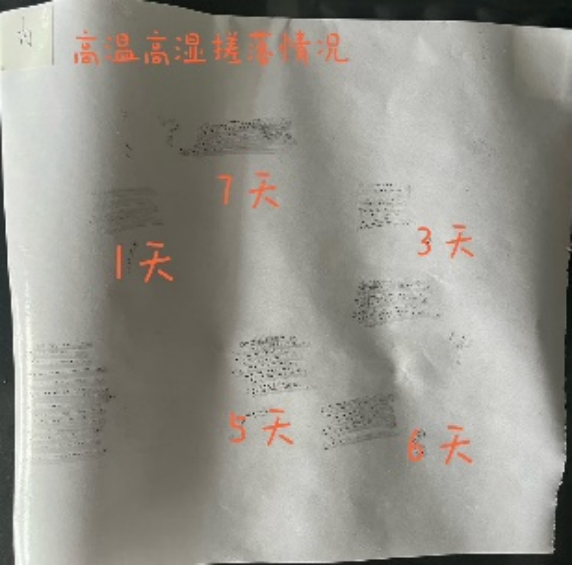 高温高湿搓落情况
7天
1天
3天
5天
6天